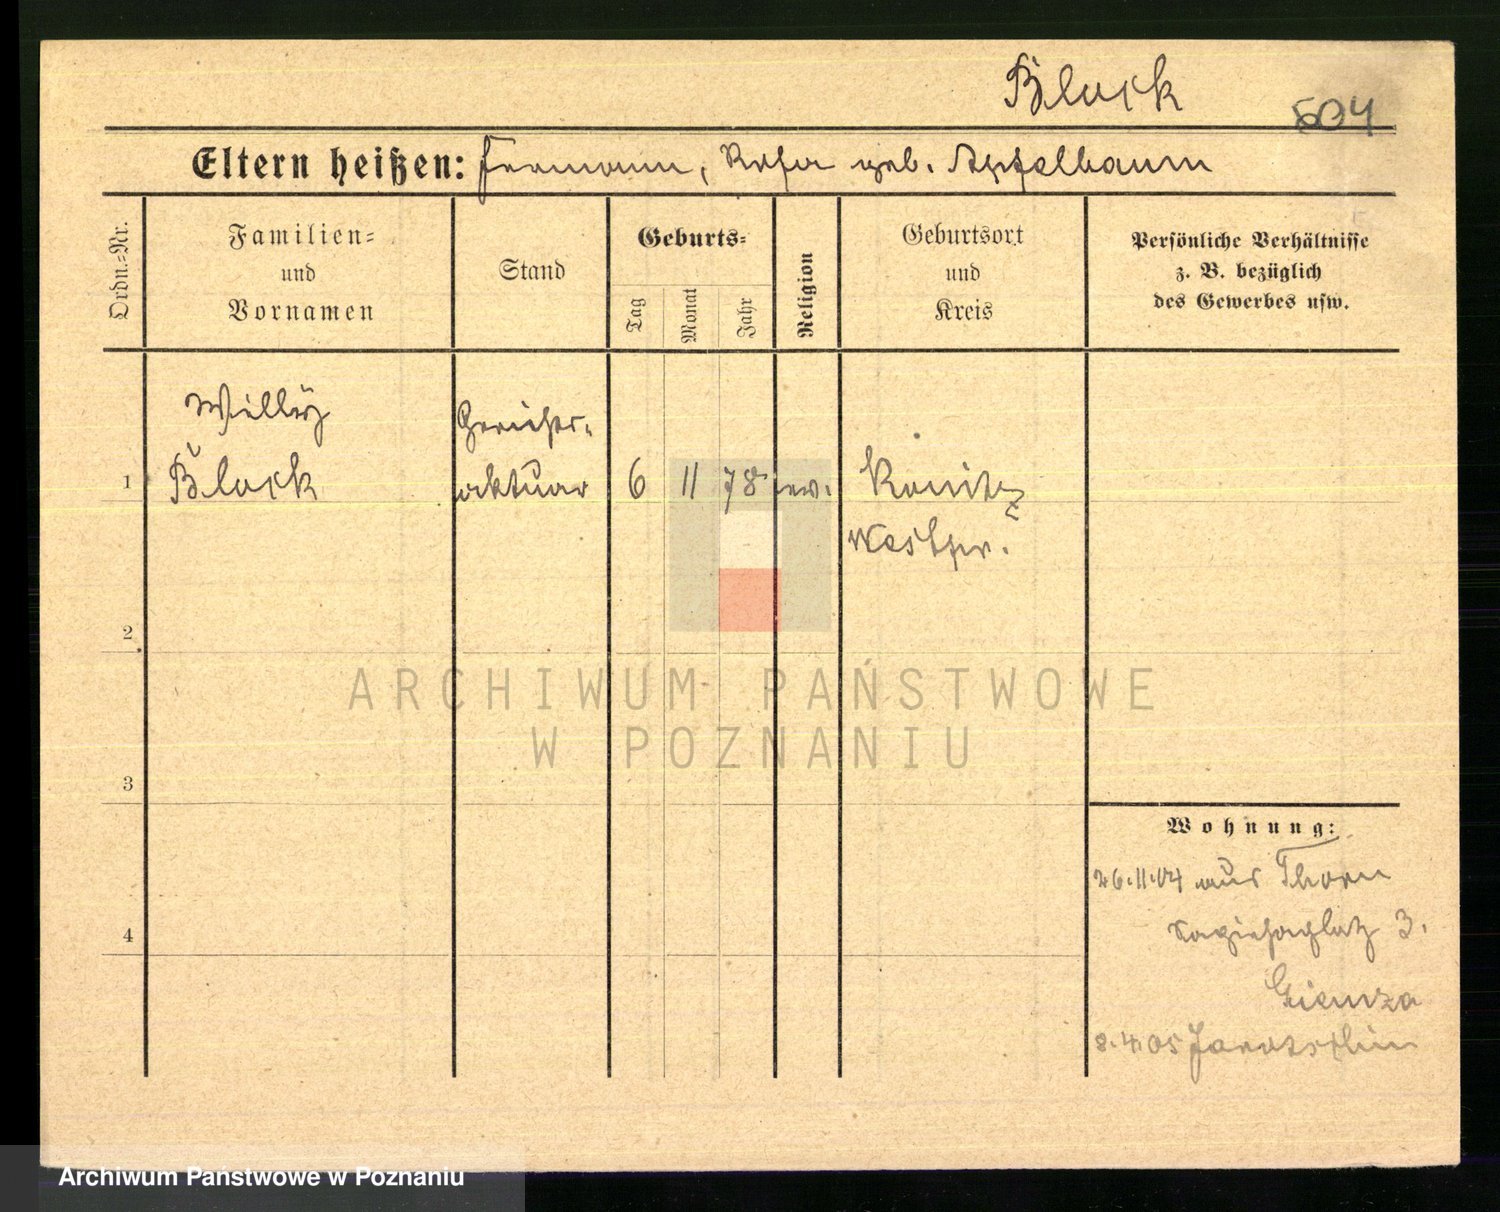 Block
504
Eltern heißen: Hermann, Rosa geb. Apfelbaum
Ordn.-Nr.
Familien-
und
Vornamen
Stand
Geburts-
Tag
Monat
Jahr
Religion
Geburtsort
und
Kreis
Persönliche Verhältnisse
z. B. bezüglich
des Gewerbes usw.
Willÿ
Gerichts-
1 Block aktuar 6 11 78 ev. Konitz
Westpr.
2
3
4
Wohnung:
26.11.04 aus Thorn
Sapiehaplatz 3.
8.4.05 Jarotschin
ARCHIWUM PAŃSTWOWE
W POZNANIU
Archiwum Państwowe w Poznaniu